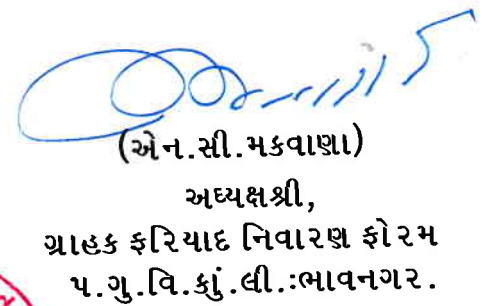 (એન.સી.મકવાણા)
અધ્યક્ષશ્રી,
ગ્રાહક ફરિયાદ નિવારણ ફોરમ
પ.ગુ.વિ.કાું.લી.:ભાવનગર.